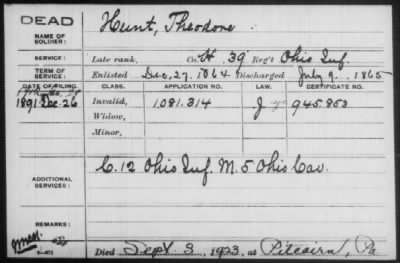 DEAD
NAME OF SOLDIER: Hunt, Theodore
SERVICE: Late rank, Co. H, 39 Reg't Ohio Inf.
TERM OF SERVICE: Enlisted Dec. 27, 1864 Discharged July 9, 1865
DATE OF FILING. CLASS. APPLICATION NO. LAW. CERTIFICATE NO.
1891 Dec. 26 Invalid, 1,081,314 945,853
Widow,
Minor,
ADDITIONAL SERVICES: C. 12 Ohio Inf. M. 5 Ohio Cav.
REMARKS:
Died Sept 3, 1923, at Pitcairn, Pa